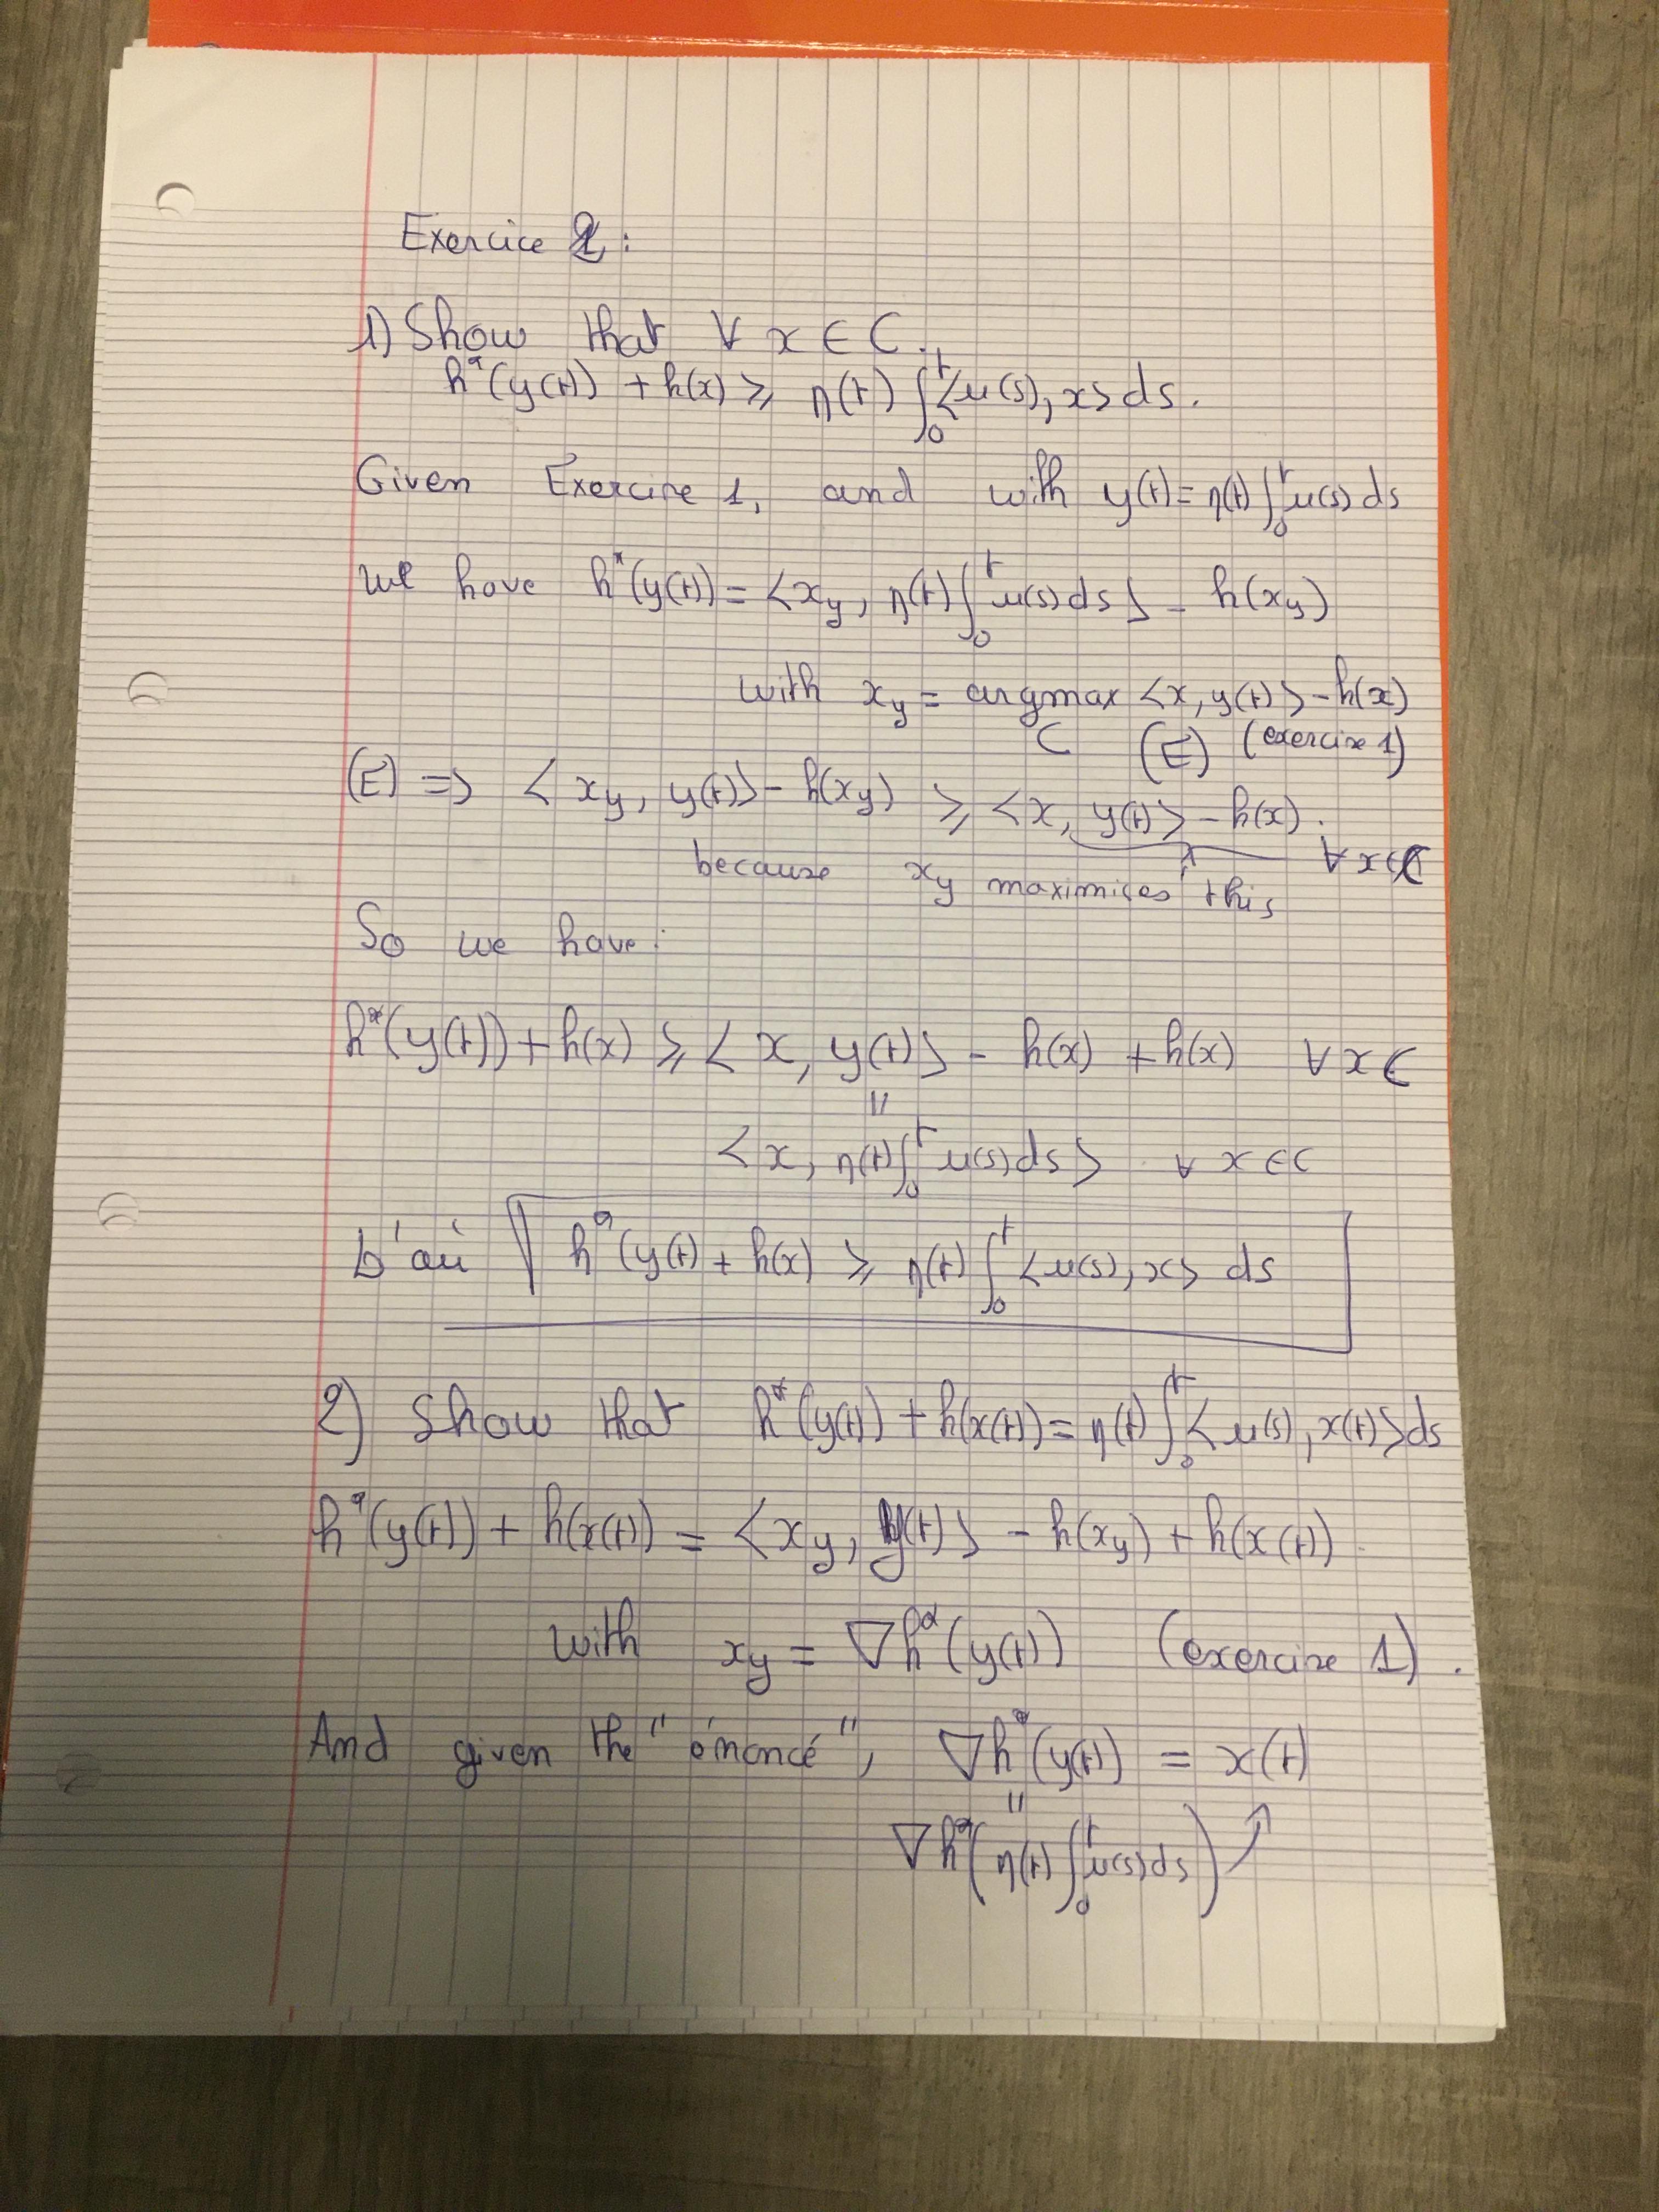 Exercice 2 :
1) Show that ∀ x ∈ C.
h*(y(t)) + h(x) ≥ η(t) ∫₀ᵗ <u(s), x> ds.
Given Exercise 1, and with y(t) = η(t) ∫₀ᵗ u(s) ds
we have h*(y(t)) = <x_y, η(t) ∫₀ᵗ u(s) ds> - h(x_y)
with x_y = argmax <x, y(t)> - h(x)
C (E) (exercise 1)
(E) => <x_y, y(t)> - h(x_y) ≥ <x, y(t)> - h(x).
because x_y maximises this ∀ x ∈ C
So we have :
h*(y(t)) + h(x) ≥ <x, y(t)> - h(x) + h(x) ∀ x ∈
=
<x, η(t) ∫₀ᵗ u(s) ds> ∀ x ∈ C
D'où h*(y(t) + h(x) ≥ η(t) ∫₀ᵗ <u(s), x> ds
2) Show that h*(y(t)) + h(x(t)) = η(t) ∫₀ᵗ <u(s), x(t)> ds
h*(y(t)) + h(x(t)) = <x_y, y(t)> - h(x_y) + h(x(t))
with x_y = ∇h*(y(t)) (exercise 1).
And given the "énoncé", ∇h*(y(t)) = x(t)
=
∇h*(η(t) ∫₀ᵗ u(s) ds)